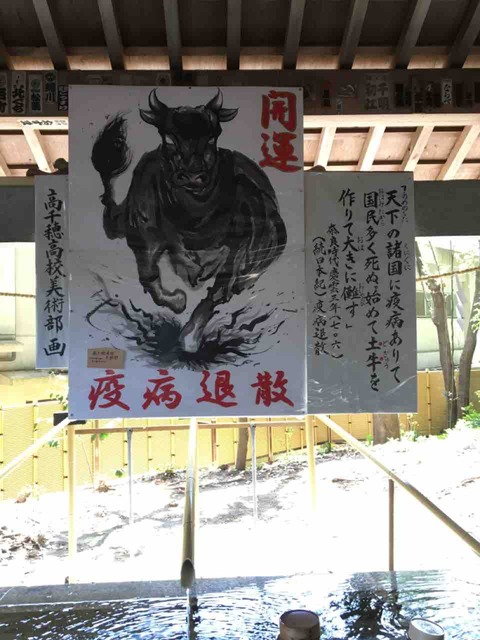 開運
疫病退散
高千穂高校美術部画
天下の諸国に疫病ありて
国民多く死ぬ始めて土牛を
作りて大きに儺す
奈良時代慶雲三年(七〇六)
〈続日本紀〉疫病退散